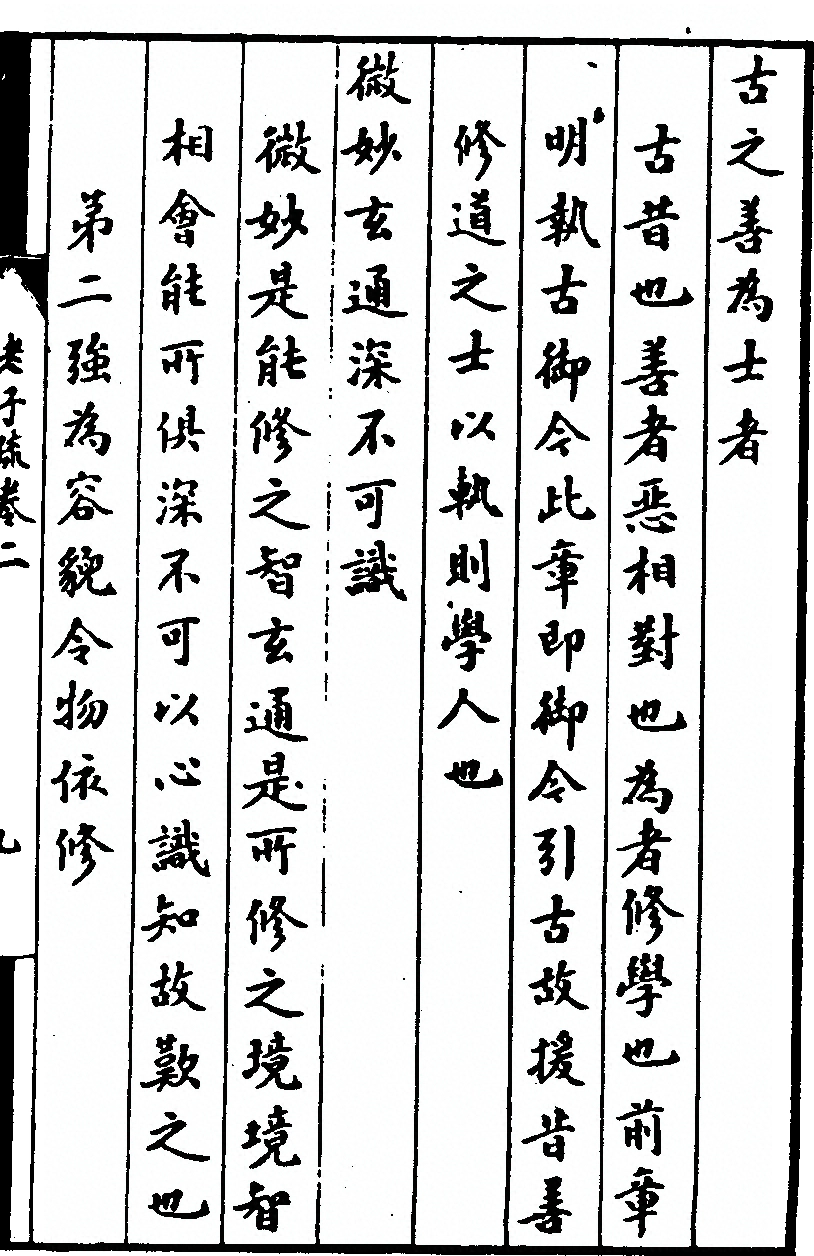 古之善為士者
古昔也善者惡相對也為者修學也前章
明執古御今此章即御今引古故援昔善
修道之士以軌則學人也
微妙玄通深不可識
微妙是能修之智玄通是所修之境境智
相會能所俱深不可以心識知故歎之也
第二強為容貌令物依修
老子疏卷二